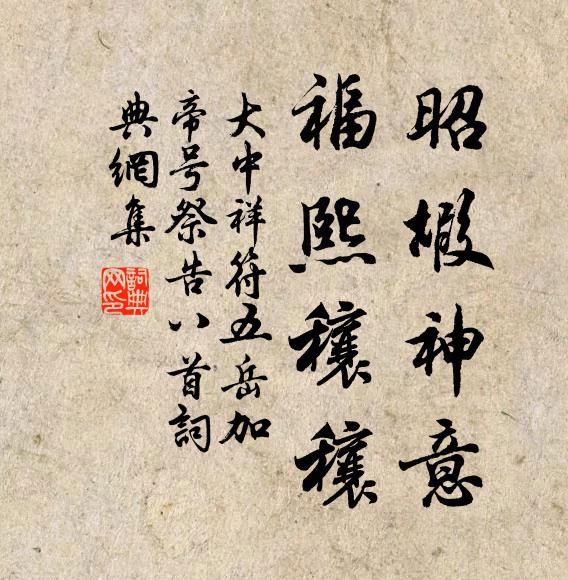 昭嘏神意
福熙穰穰
大中祥符五岳加
帝号祭告八首詞
典網集
詞典
网印